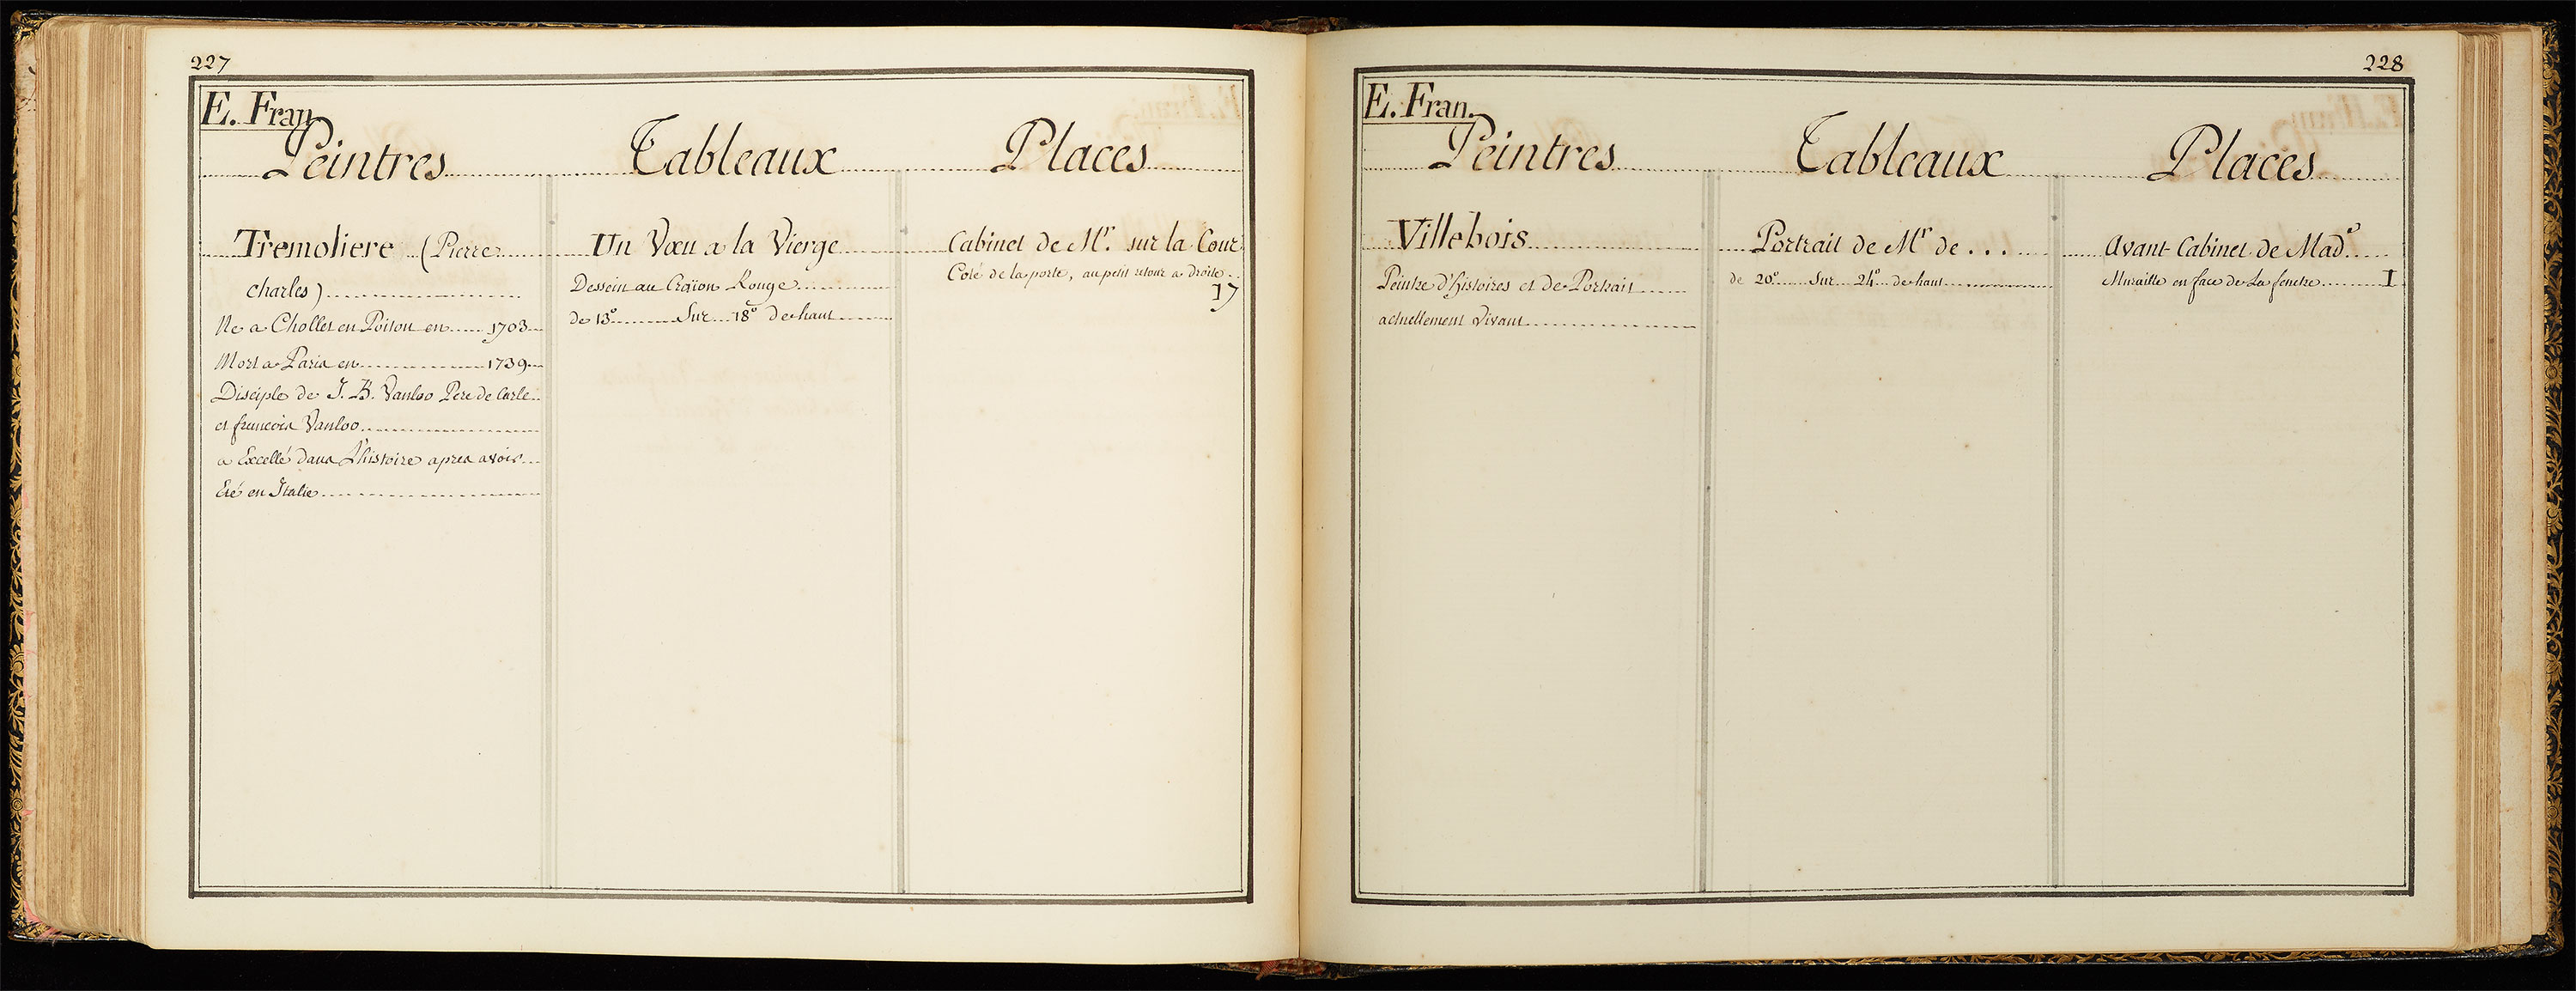 227
E. Fran.
Peintres Tableaux Places
Tremoliere (Pierre
charles)
Ne a Chollet en Poitou en 1703
Mort a Paris en 1739
Disciple de J. B. Vanloo Pere de Carle
et francois Vanloo
a Excellé dans L'histoire apres avoir
Eté en Italie
Un Vœu a la Vierge
Dessein au Craïon Rouge
de 13° Sur 18° de haut
Cabinet de Mr. sur la Cour
Coté de la porte, au petit retour a droite
17
228
E. Fran.
Peintres Tableaux Places
Villebois
Peintre d'histoires et de Portrait
actuellement Vivant
Portrait de Mr de ...
de 20° Sur 24° de haut
Avant Cabinet de Made
Muraille en face de La fenetre I